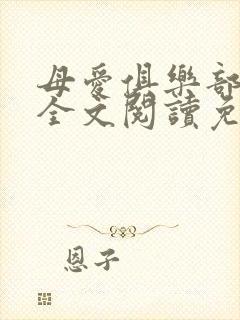 母愛俱樂部
全文閱讀免
恩子